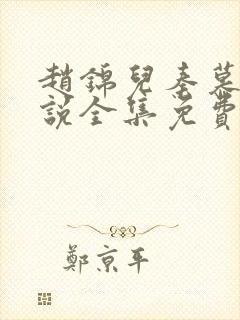 趙錦兒秦慕
說全集免費
鄭京平